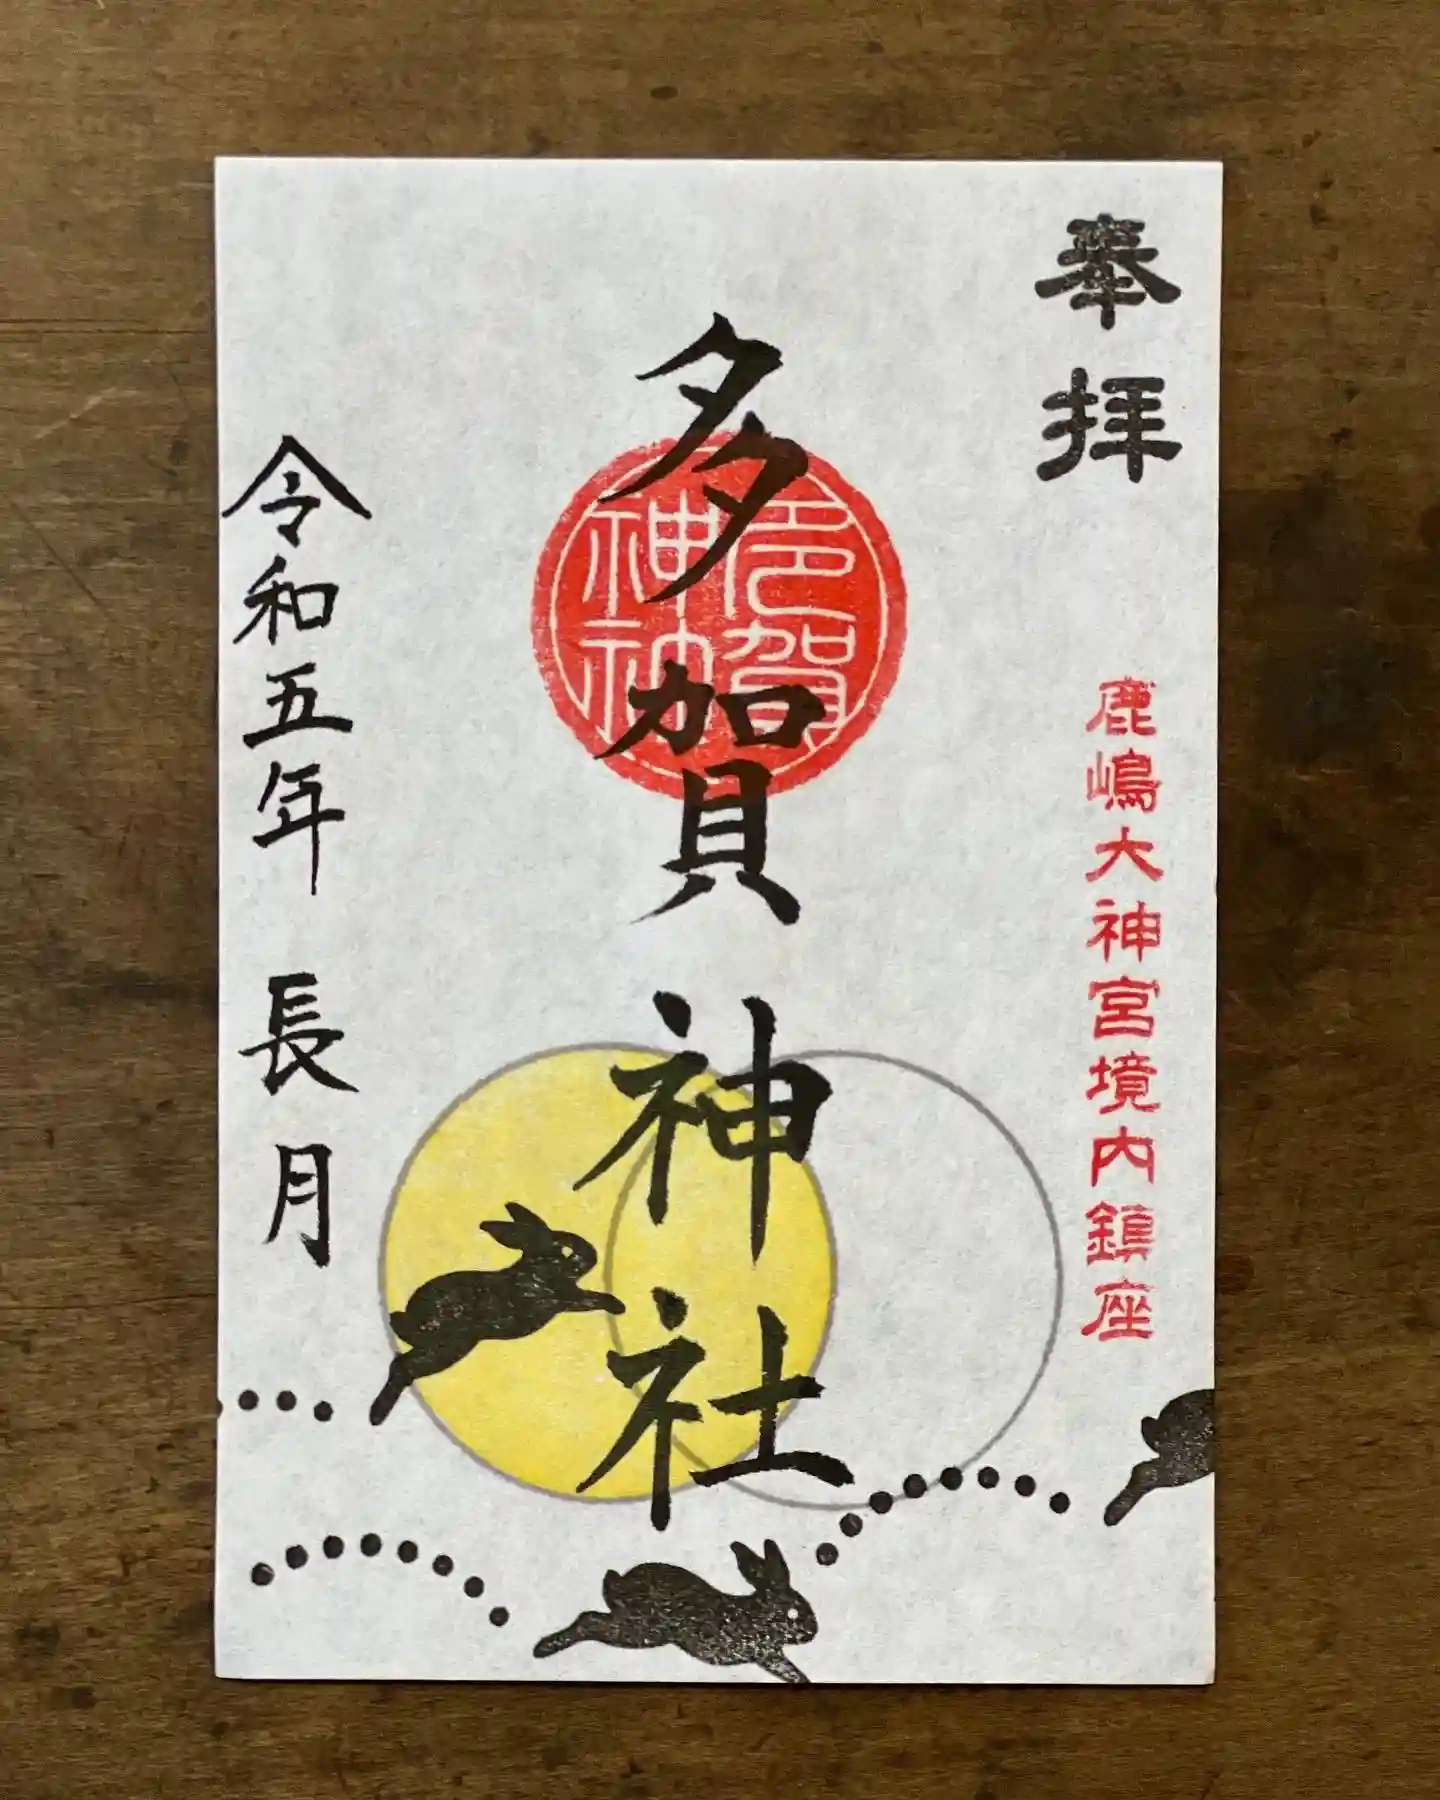 奉拝
鹿嶋大神宮境内鎮座
多賀神社
多賀神社
令和五年 長月